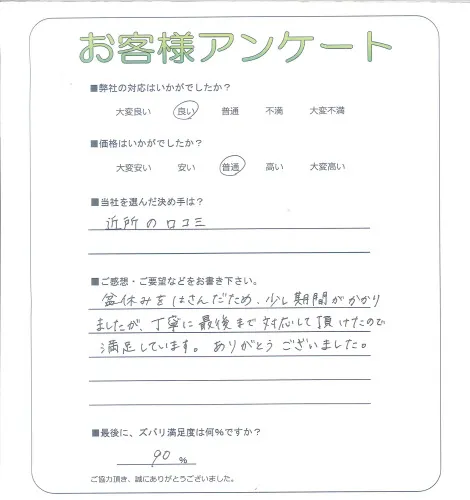 お客様アンケート
■弊社の対応はいかがでしたか？
大変良い 良い 普通 不満 大変不満
■価格はいかがでしたか？
大変安い 安い 普通 高い 大変高い
■当社を選んだ決め手は？
近所の口コミ
■ご感想・ご要望などをお書き下さい。
盆休みをはさんだため、少し期間がかかり
ましたが、丁寧に最後まで対応して頂けたので
満足しています。ありがとうございました。
■最後に、ズバリ満足度は何％ですか？
90 %
ご協力頂き、誠にありがとうございました。